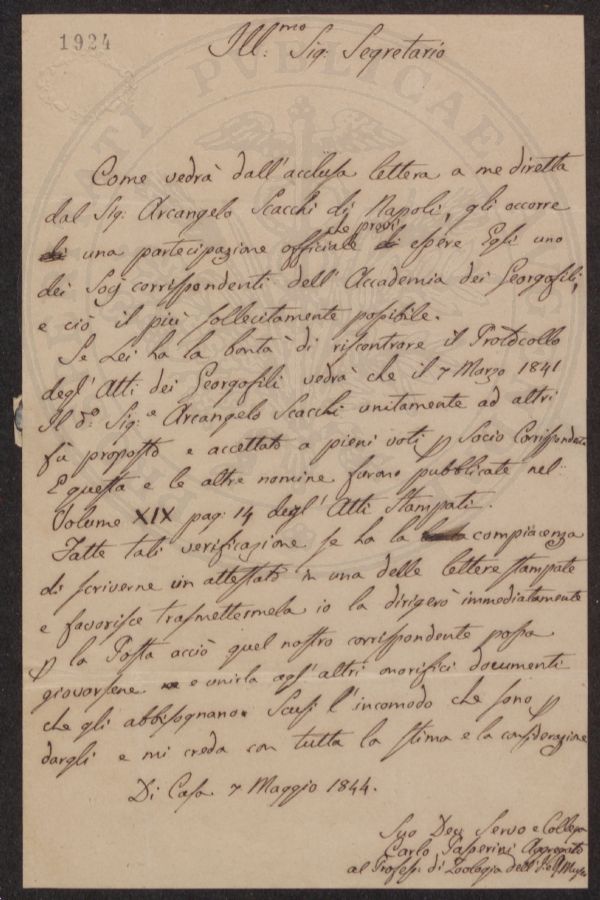 1924
Ill:mo Sig: Segretario
PUBLICAE
Come vedrà dall'acclusa lettera a me diretta
dal Sig: Arcangelo Scacchi di Napoli, gli occorre
una partecipazione officiale che provi essere Egli uno
dei Socj corrispondenti dell'Accademia dei Georgofili,
e ciò il più sollecitamente possibile.
Se Lei ha la bontà di riscontrare il Protocollo
degl'Atti dei Georgofili vedrà che il 7 Marzo 1841
Il do. Sig:e Arcangelo Scacchi unitamente ad altri
fù proposto e accettato a pieni voti p Socio Corrispondente
E questa e le altre nomine furono pubblicate nel
Volume XIX pag: 14 degl'Atti Stampati.
Fatte tali verificazione se ha la compiacenza
di scriverne un attestato in una delle lettere stampate
e favorisce trasmettermela io la dirigerò immediatamente
p la Posta acciò quel nostro corrispondente possa
giovarsene e unirla agl'altri onorifici documenti
che gli abbisognano. Scusi l'incomodo che sono p
dargli e mi creda con tutta la stima e la considerazione
Di Casa 7 Maggio 1844.
Suo Dev Servo e Collega
Carlo Passerini Aggregato
al Profess. di Zoologia dell'I. e R. Museo